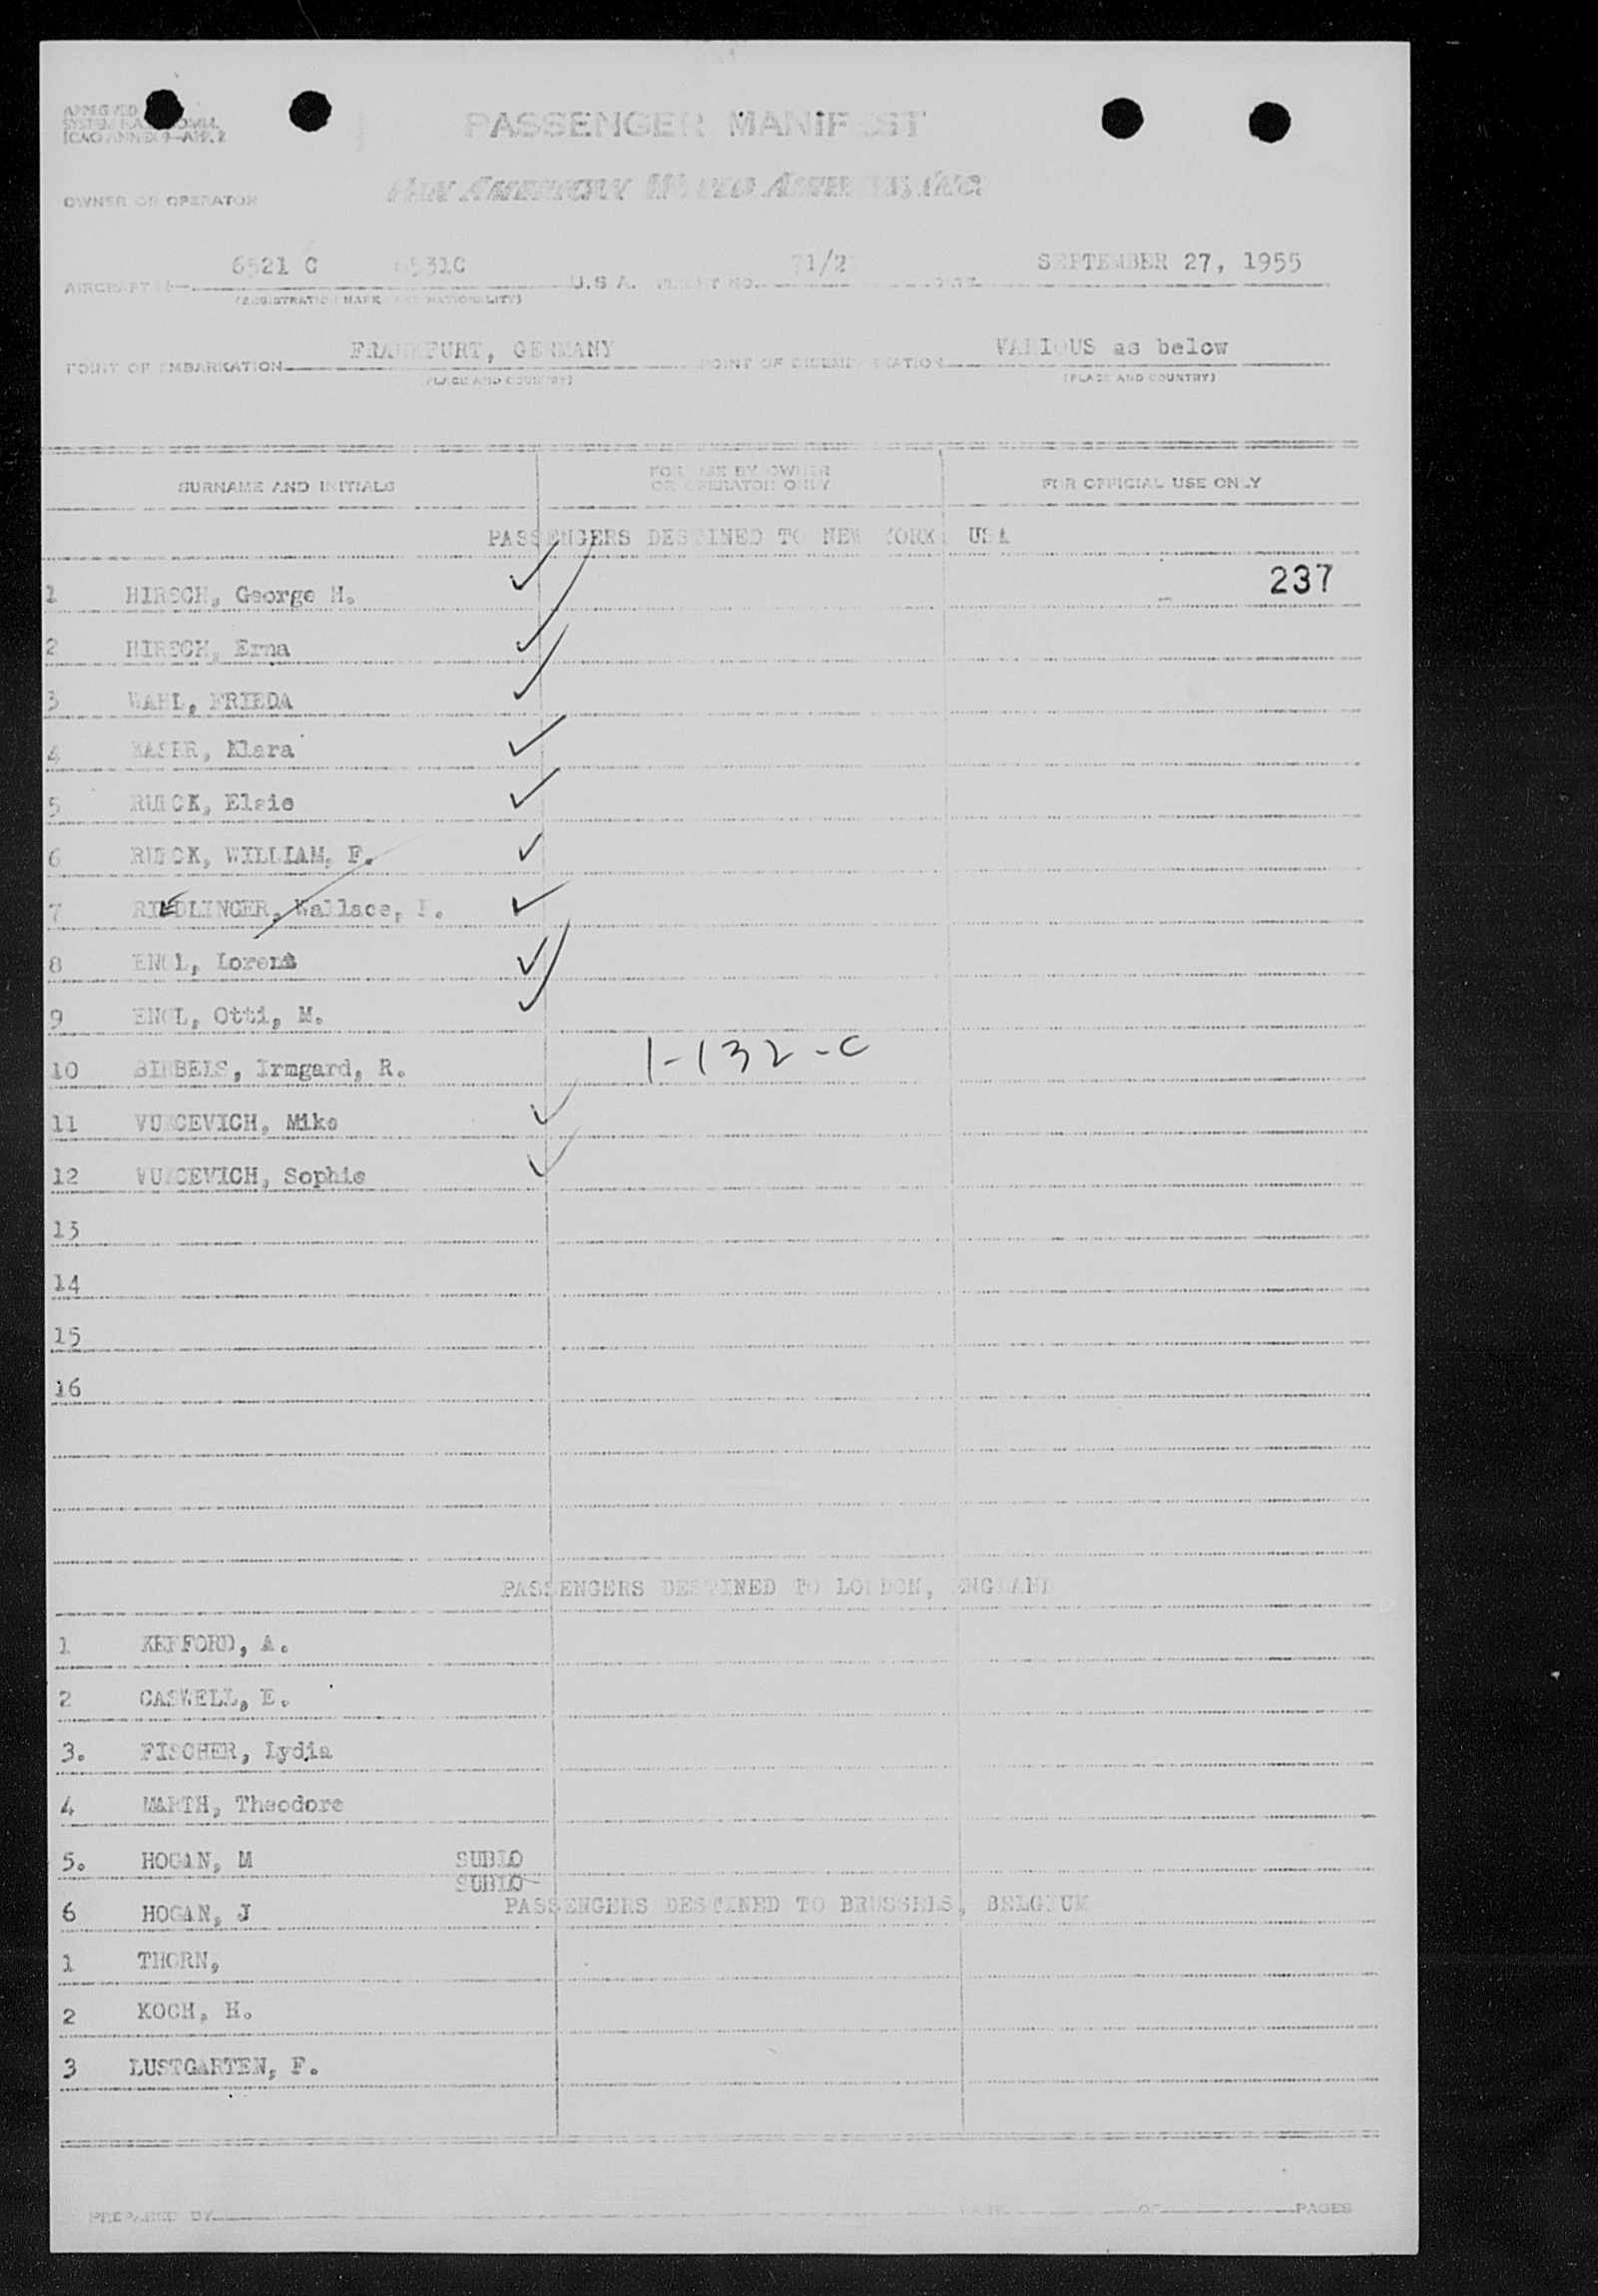 PASSENGER MANIFEST
OWNER OR OPERATOR PAN AMERICAN WORLD AIRWAYS, INC.
6521 C 6531C 71/2 SEPTEMBER 27, 1955
AIRCRAFT U.S.A. FLIGHT NO. DATE
(REGISTRATION MARK AND NATIONALITY)
FRANKFURT, GERMANY VARIOUS as below
POINT OF EMBARKATION POINT OF DISEMBARKATION
(PLACE AND COUNTRY) (PLACE AND COUNTRY)
SURNAME AND INITIALS FOR USE BY OWNER OR OPERATOR ONLY FOR OFFICIAL USE ONLY
PASSENGERS DESTINED TO NEW YORK, USA
237
1 HIRSCH, George M.
2 HIRSCH, Erna
3 WAHL, FRIEDA
4 Klara
5 RUECK, Elsie
6 RUECK, WILLIAM, F.
7 RIEDLINGER, Wallace,
8 ENGL, Lorenz
9 ENGL, Otti, M.
10 Irmgard, R. 1-132-C
11 VUKCEVICH, Mike
12 VUKCEVICH, Sophie
13
14
15
16
PASSENGERS DESTINED TO LONDON, ENGLAND
1 KEFFORD, A.
2 CASWELL, E.
3. FISCHER, Lydia
4 MARTH, Theodore
5. HOGAN, M SUBLO
SUBLO
6 HOGAN, J
PASSENGERS DESTINED TO BRUSSELS, BELGIUM
1 THORN,
2 KOCH, H.
3 LUSTGARTEN, F.
PREPARED BY PAGE OF PAGES